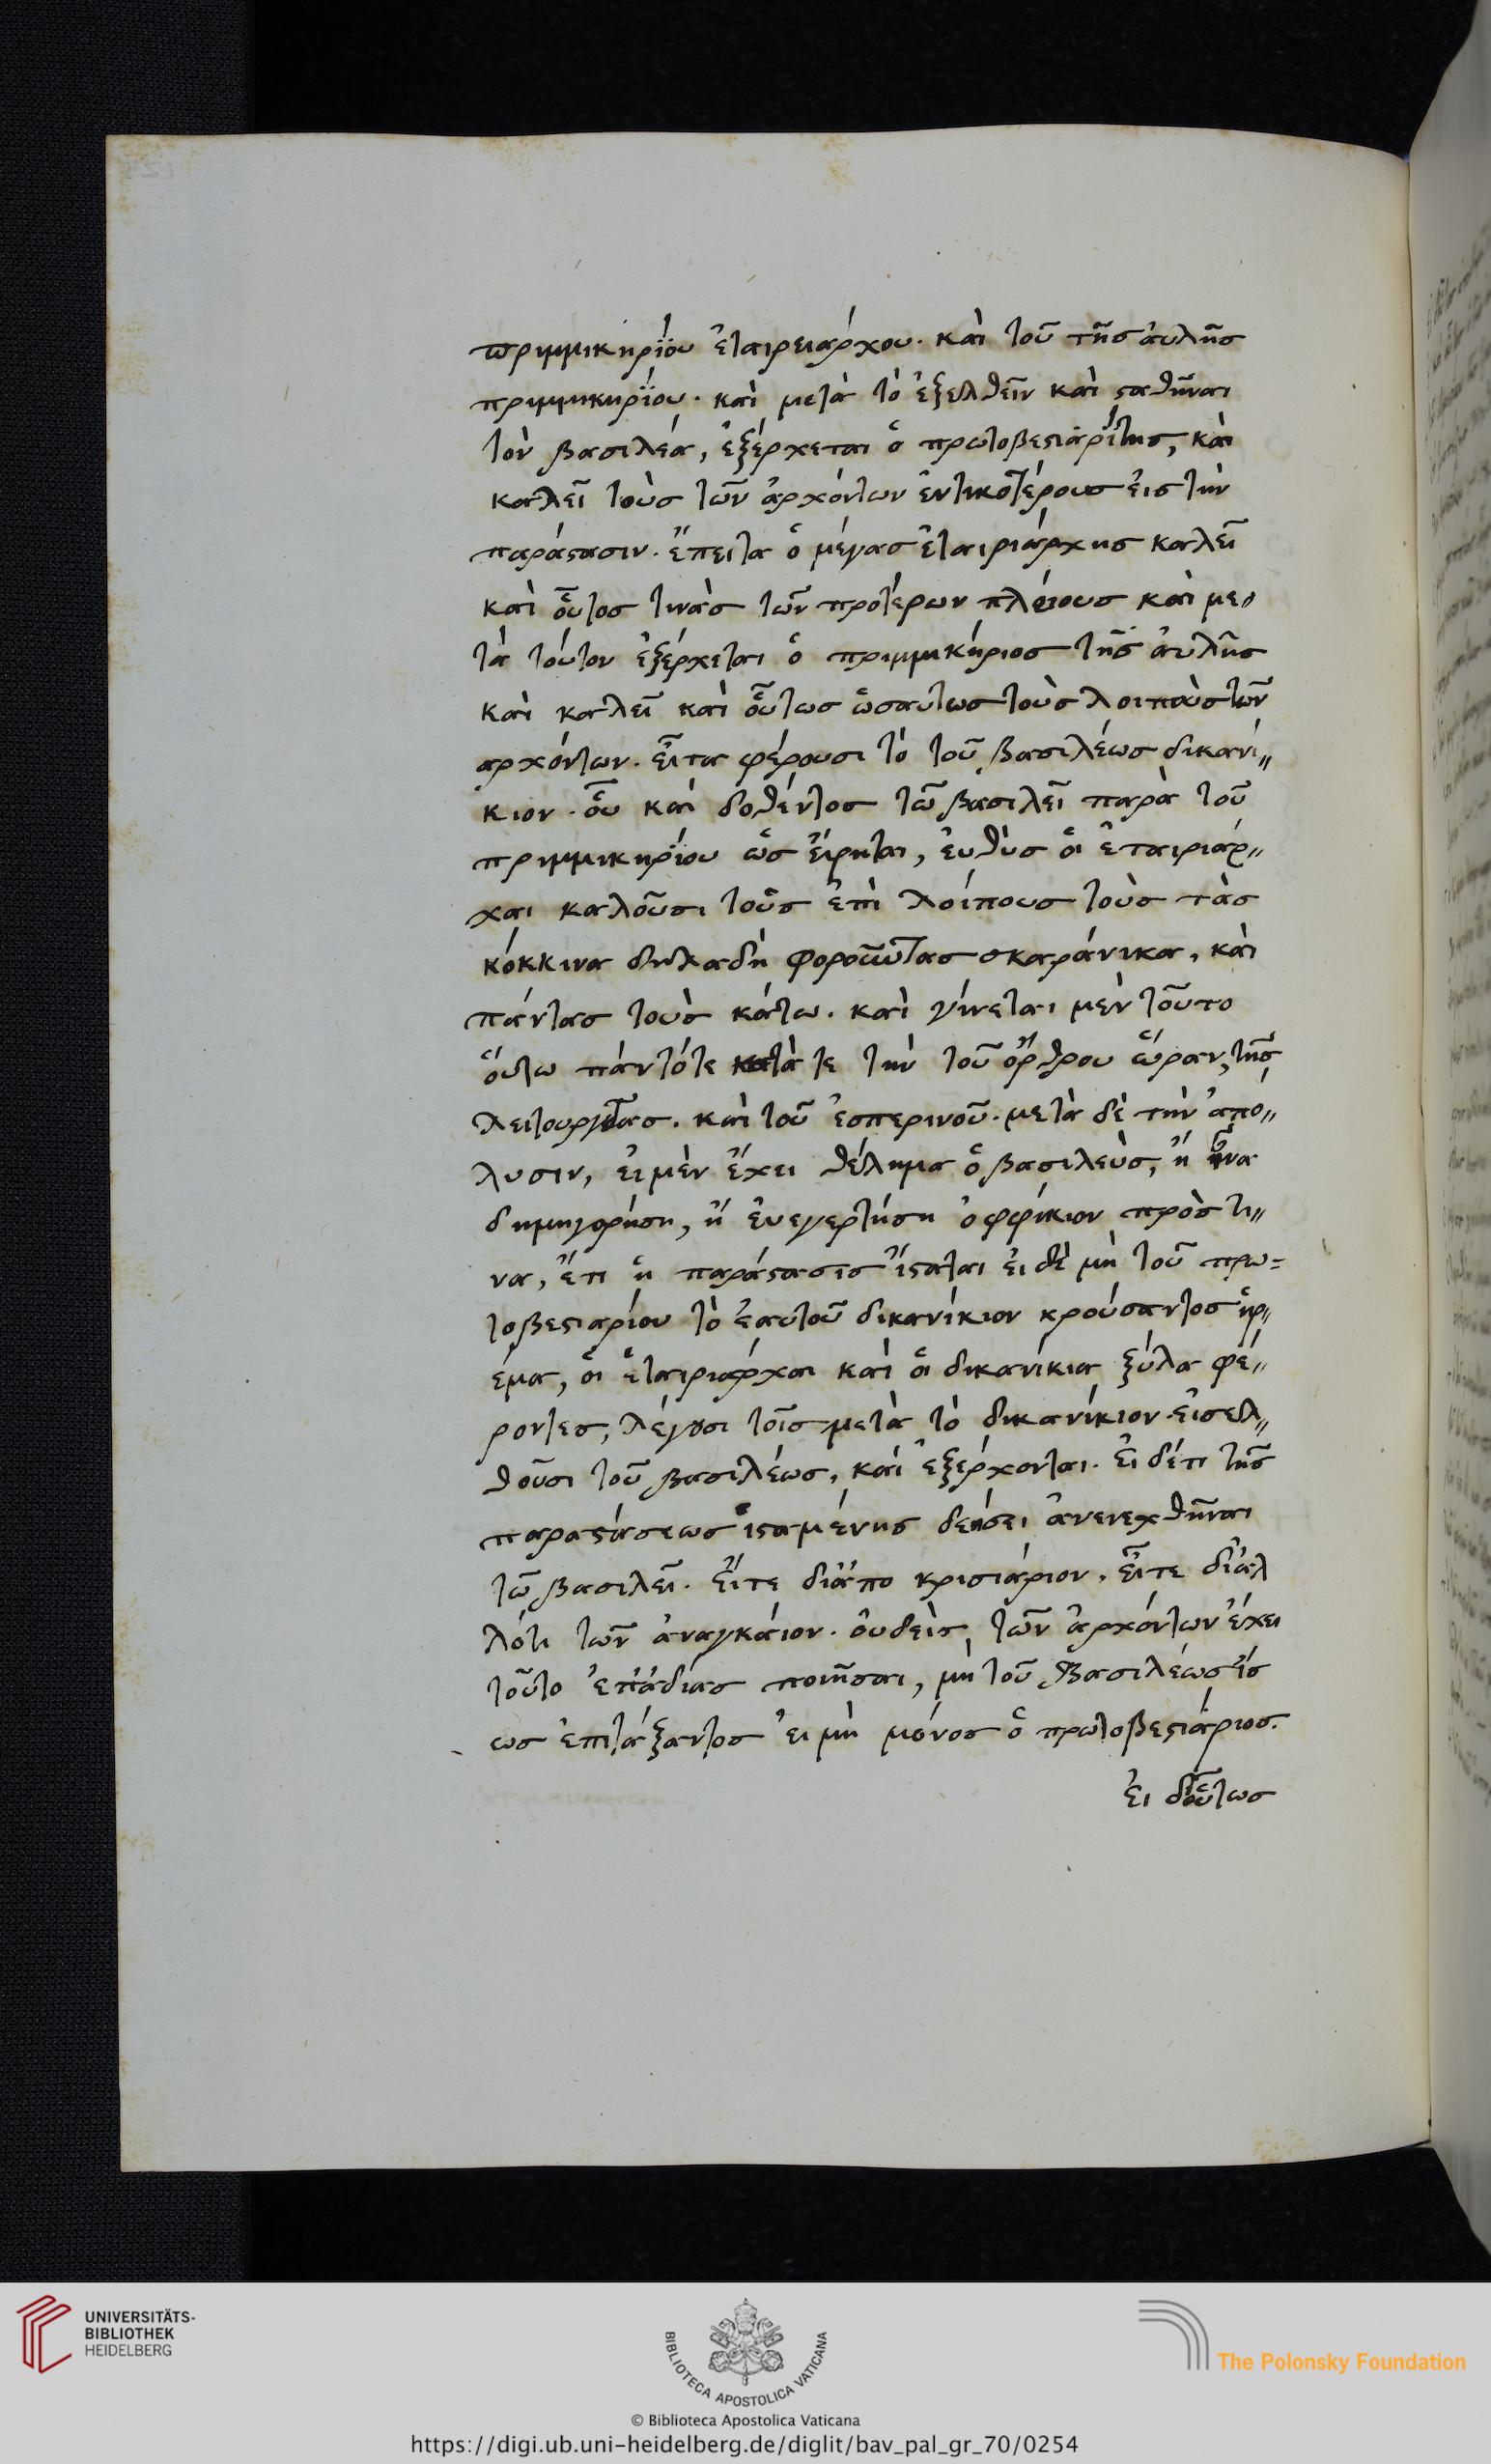 πριμμικηρίου ἑταιρειάρχου. καὶ τοῦ τῆς ἀυλῆς
πριμμικηρίου. καὶ μετὰ τὸ ἐξελθεῖν καὶ ϛαθῆναι
τὸν βασιλέα, ἐξέρχεται ὁ πρωτοβεϛιαρίτης, καὶ
καλεῖ τοὺς τῶν ἀρχόντων ἐντικοτέρους ἐις τὴν
παράϛασιν. ἔπειτα ὁ μέγας ἑταιριάρχης καλεῖ
καὶ οὗτος τινὰς τῶν προτέρων πλείους καὶ με,
τὰ τούτον ἐξέρχεται ὁ πριμμικήριος τῆς ἀυλῆς
καὶ καλεῖ καὶ οὗτως ὡσαύτως τοὺς λοιποὺς τῶν
αρχόντων. εἶτα φέρουσι τὸ τοῦ βασιλέως δικανί,,
κιον. οὗ καὶ δοθέντος τῶ βασιλεῖ παρὰ τοῦ
πριμμικηρίου ὡς ἐίρηται, ἐυθὺς ὁι ἑταιριάρ,,
χαι καλοῦσι τοὺς ἐπὶ λοίπους τοὺς τὰς
κόκκινα δηλαδὴ φοροῦντας σκαράνικα, καὶ
πάντας τοὺς κάτω. καὶ γίνεται μὲν τοῦτο
ὅυτω πάντότε κατὰ τε τὴν τοῦ ὄρθρου ὥραν, τῆς
λειτουργίας. καὶ τοῦ ἑσπερινοῦ. μετὰ δὲ τὴν ἀπό,,
λυσιν, ἐι μὲν ἔχει θέλημα ὁ βασιλεὺς, ἢ ἵνα
δημηγορήση, ἢ ἐυεγερτήση ὀφφίκιον πρὸς τι,,
να, ἔτι ἡ παράϛασις ἵϛαται ἐι δὲ μὴ τοῦ πρω=
τοβεϛιαρίου τὸ ἑαυτοῦ δικανίκιον κρούσαντος ἠρ,,
έμα, ὁι ἑταιριάρχαι καὶ ὁι δικανίκια ξύλα φέ,,
ροντες, λέγουσι τοῖς μετὰ τὸ δικανίκιον εἰσελ,,
θοῦσι τοῦ βασιλέως, καὶ ἐξέρχονται. ἐι δέτι τῆς
παραϛάσεως ἱϛαμένης δεήσει ἀνενεχθῆναι
τῶ βασιλεῖ. ἔιτε διἀπο κρισιάριον, εἶτε δἰάλ
λότι τῶν ἀναγκάιον. ὀυδεὶς τῶν ἀρχόντων ἔχει
τοῦτο ἐπἀδίας ποιῆσαι, μὴ τοῦ βασιλέως ἰσ
ως ἐπιτάξαντος ἐι μὴ μόνος ὁ πρωτοβεϛιάριος.
ἐι δοὕτως
UNIVERSITÄTS-
BIBLIOTHEK
HEIDELBERG
BIBLIOTECA APOSTOLICA VATICANA
The Polonsky Foundation
© Biblioteca Apostolica Vaticana
https://digi.ub.uni-heidelberg.de/diglit/bav_pal_gr_70/0254